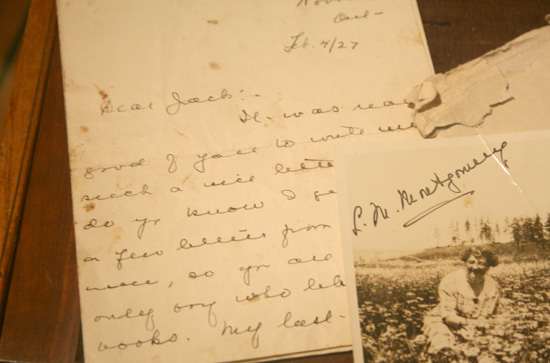 Ont-
Feb. 4/27
Dear Jack:-
It was
good of you to write me
such a nice
do yo know I
a few letters from
so yo are
only boy who
books. My last-
L. M. Montgomery